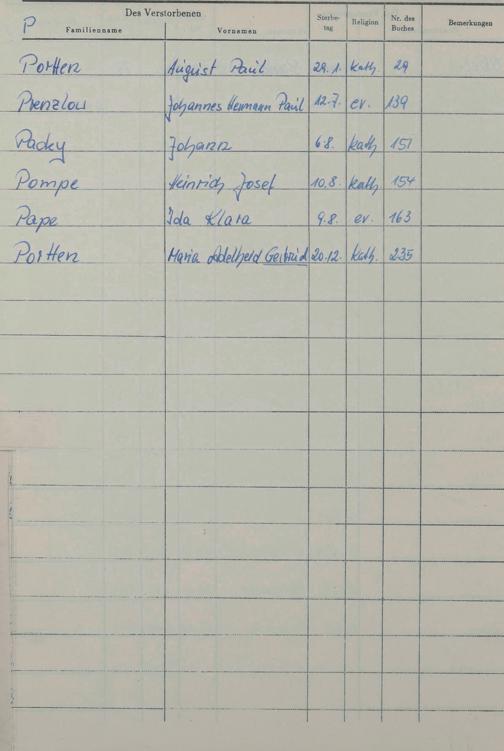 P
Des Verstorbenen
Familienname Vornamen Sterbe- tag Religion Nr. des Buches Bemerkungen
Porten August Paul 29.1. kath. 29
Prenzlou Johannes Hermann Paul 12.7. ev. 139
Packy Johann 6.8. kath. 151
Pompe Heinrich Josef 10.8. kath. 154
Pape Ida Klara 9.8. ev. 163
Porten Maria Adelheid Gertrud 20.12. kath. 235